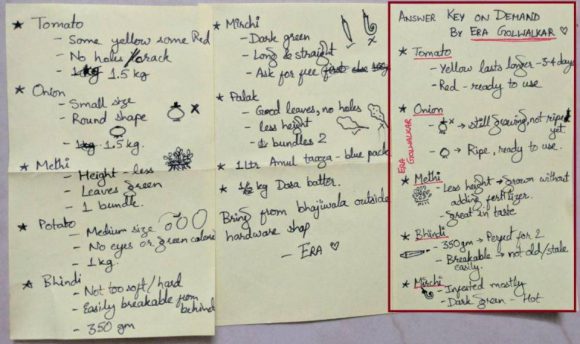 ★ Tomato
- Some yellow some Red
- No holes / crack
- 1.5 kg
★ Onion
- Small size
- Round shape
x
- 1.5 kg.
★ Methi
- Height - less
- Leaves green
- 1 bundle.
★ Potato
- Medium size
- No eyes or green
- 1 kg.
★ Bhindi
- Not too soft / hard
- Easily breakable from behind
- 350 gm
★ Mirchi
- Dark green
- Long & straight
- Ask for free
★ Palak
- Good leaves, no holes
- less height
- 1 bundles 2
★ 1 Ltr. Amul taaza - blue pack
★ ½ kg Dosa batter.
Bring from bhajiwala outside
hardware shop
- ERA ♡
ANSWER KEY ON DEMAND
BY ERA GOLWALKAR ♡
★ Tomato
- Yellow lasts longer - 3-4 days
- Red - ready to use
★ Onion
x → still growing, not ripe yet.
→ Ripe, ready to use.
ERA GOLWALKAR
★ Methi
- Less height → Grown without
adding fertilizer.
- Great in taste
★ Bhindi
- 350 gm → Perfect for 2
- Breakable → not old/stale
easily.
★ Mirchi
- Infected mostly
- Dark green - Hot